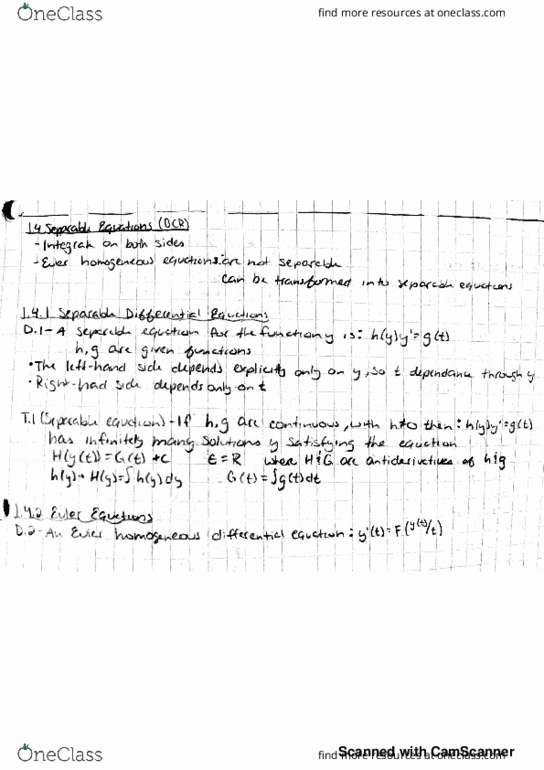 OneClass
find more resources at oneclass.com
1.4 Separable Equations (OCR)
- Integrate on both sides
- Euler homogeneous equations are not separable
can be transformed into separable equations
1.4.1 Separable Differential Equations
D.1 - A separable equation for the function y is: h(y)y'=g(t)
h,g are given functions
• The left-hand side depends explicitly only on y, so t dependance through y
• Right-had side depends only on t
T.1 (Seperable equation) - If h,g are continuous, with h≠o then: h(y)y'=g(t)
has infinitely many solutions y satisfying the equation
H(y(t)) = G(t) +c   ∈=R   where H & G are antiderivatives of h & g
h(y)→ H(y)=∫h(y)dy   G(t)=∫g(t)dt
1.4.2 Euler Equations
D.2 - An Euler homogeneous differential equation: y'(t)=F(y(t)/t)
OneClass
find more resources at oneclass.com
Scanned with CamScanner